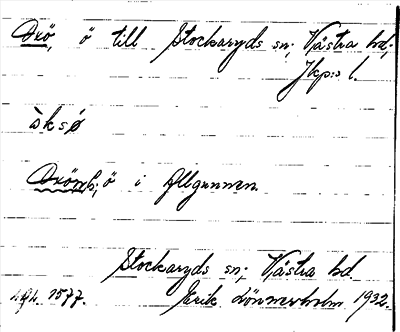 Oxö, ö till Stockaryds sn; Västra hd;
Jkp:s l.
òksø
Oxön, ö i Allgunnen.
Stockaryds sn; Västra hd.
1577. Erik Lönnerholm 1932.